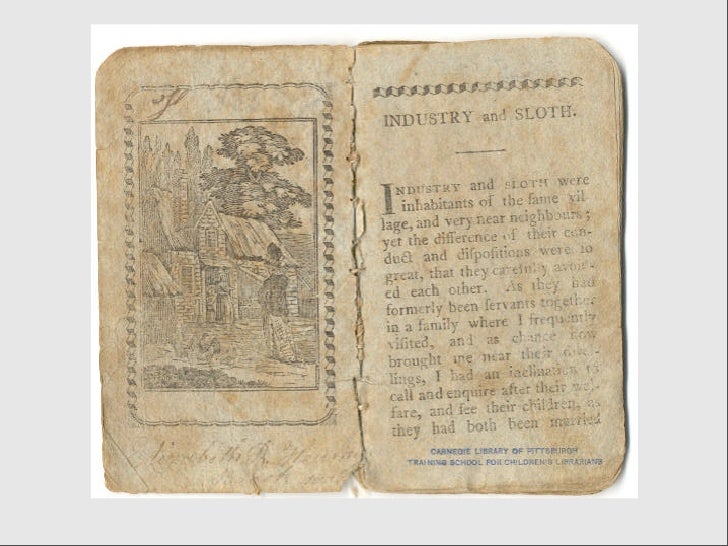 INDUSTRY and SLOTH.
INDUSTRY and SLOTH were
inhabitants of the ſame vil-
lage, and very near neighbours;
yet the difference of their con-
duct and diſpoſitions were ſo
great, that they carefully avoid-
ed each other. As they had
formerly been ſervants together
in a family where I frequently
viſited, and as chance now
brought me near their dwel-
lings, I had an inclination to
call and enquire after their wel-
fare, and ſee their children, as
they had both been married
CARNEGIE LIBRARY OF PITTSBURGH
TRAINING SCHOOL FOR CHILDREN'S LIBRARIANS